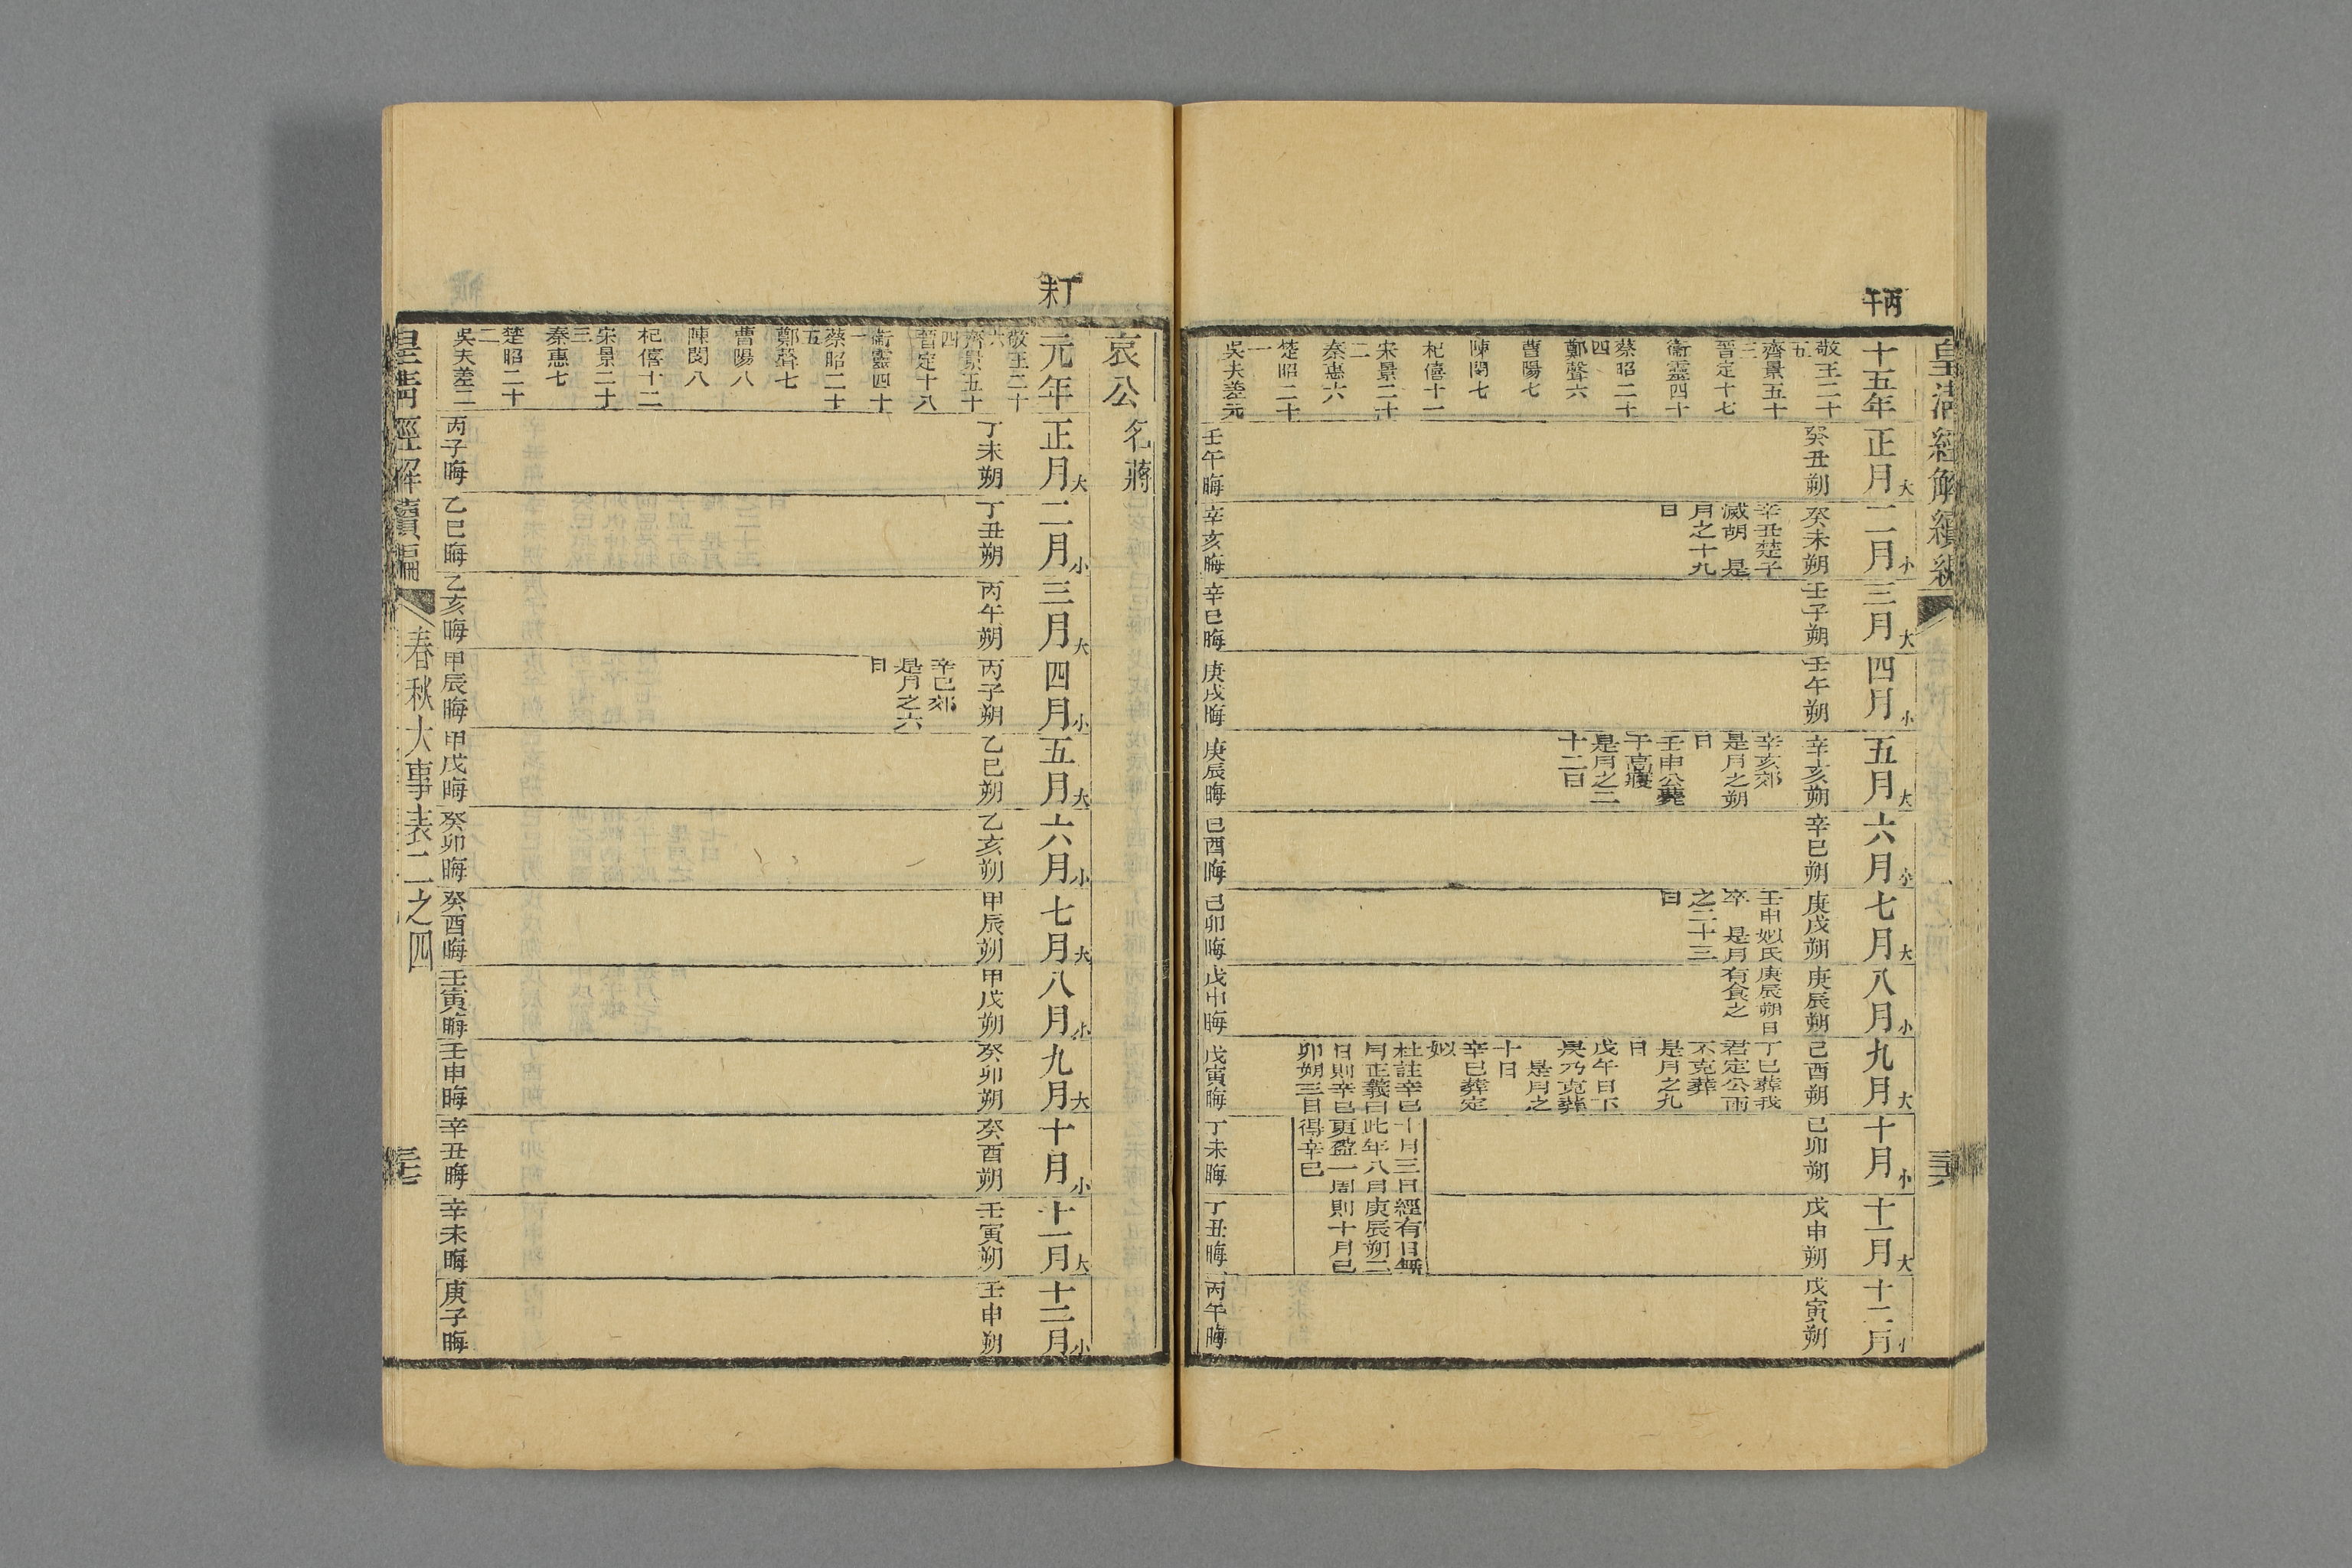 皇清經解續編
三六
丙午
十五年
敬王二十
五
齊景五十
三
晉定十七
衛靈四十
蔡昭二十
四
鄭聲六
曹陽七
陳閔七
杞僖十一
宋景二十
二
秦惠六
楚昭二十
一
吳夫差元
正月大
癸丑朔
壬午晦
二月小
癸未朔
辛丑楚子
滅胡 是
月之十九
日
辛亥晦
三月大
壬子朔
辛巳晦
四月小
壬午朔
庚戌晦
五月大
辛亥朔
辛亥郊
是月之朔
日
壬申公薨
于高寢
是月之二
十二日
庚辰晦
六月小
辛巳朔
己酉晦
七月大
庚戌朔
壬申姒氏
卒 是月
之二十三
日
己卯晦
八月小
庚辰朔
庚辰朔日
有食之
戊申晦
九月大
己酉朔
丁巳葬我
君定公雨
不克葬
是月之九
日
戊午日下
昃乃克葬
是月之
十日
辛巳葬定
姒
杜註辛巳十月三日經有日無
月正義曰此年八月庚辰朔二
日則辛巳更盈一周則十月己
卯朔三日得辛巳
戊寅晦
十月小
己卯朔
丁未晦
十一月大
戊申朔
丁丑晦
十二月小
戊寅朔
丙午晦
哀公 名蔣
丁未
元年
敬王二十
六
齊景五十
四
晉定十八
衛靈四十
一
蔡昭二十
五
鄭聲七
曹陽八
陳閔八
杞僖十二
宋景二十
三
秦惠七
楚昭二十
二
吳夫差二
正月大
丁未朔
丙子晦
二月小
丁丑朔
乙巳晦
三月大
丙午朔
乙亥晦
四月小
丙子朔
辛巳郊
是月之六
日
甲辰晦
五月大
乙巳朔
甲戌晦
六月小
乙亥朔
癸卯晦
七月大
甲辰朔
癸酉晦
八月小
甲戌朔
壬寅晦
九月大
癸卯朔
壬申晦
十月小
癸酉朔
辛丑晦
十一月大
壬寅朔
辛未晦
十二月小
壬申朔
庚子晦
皇清經解續編
春秋大事表二之四
三七